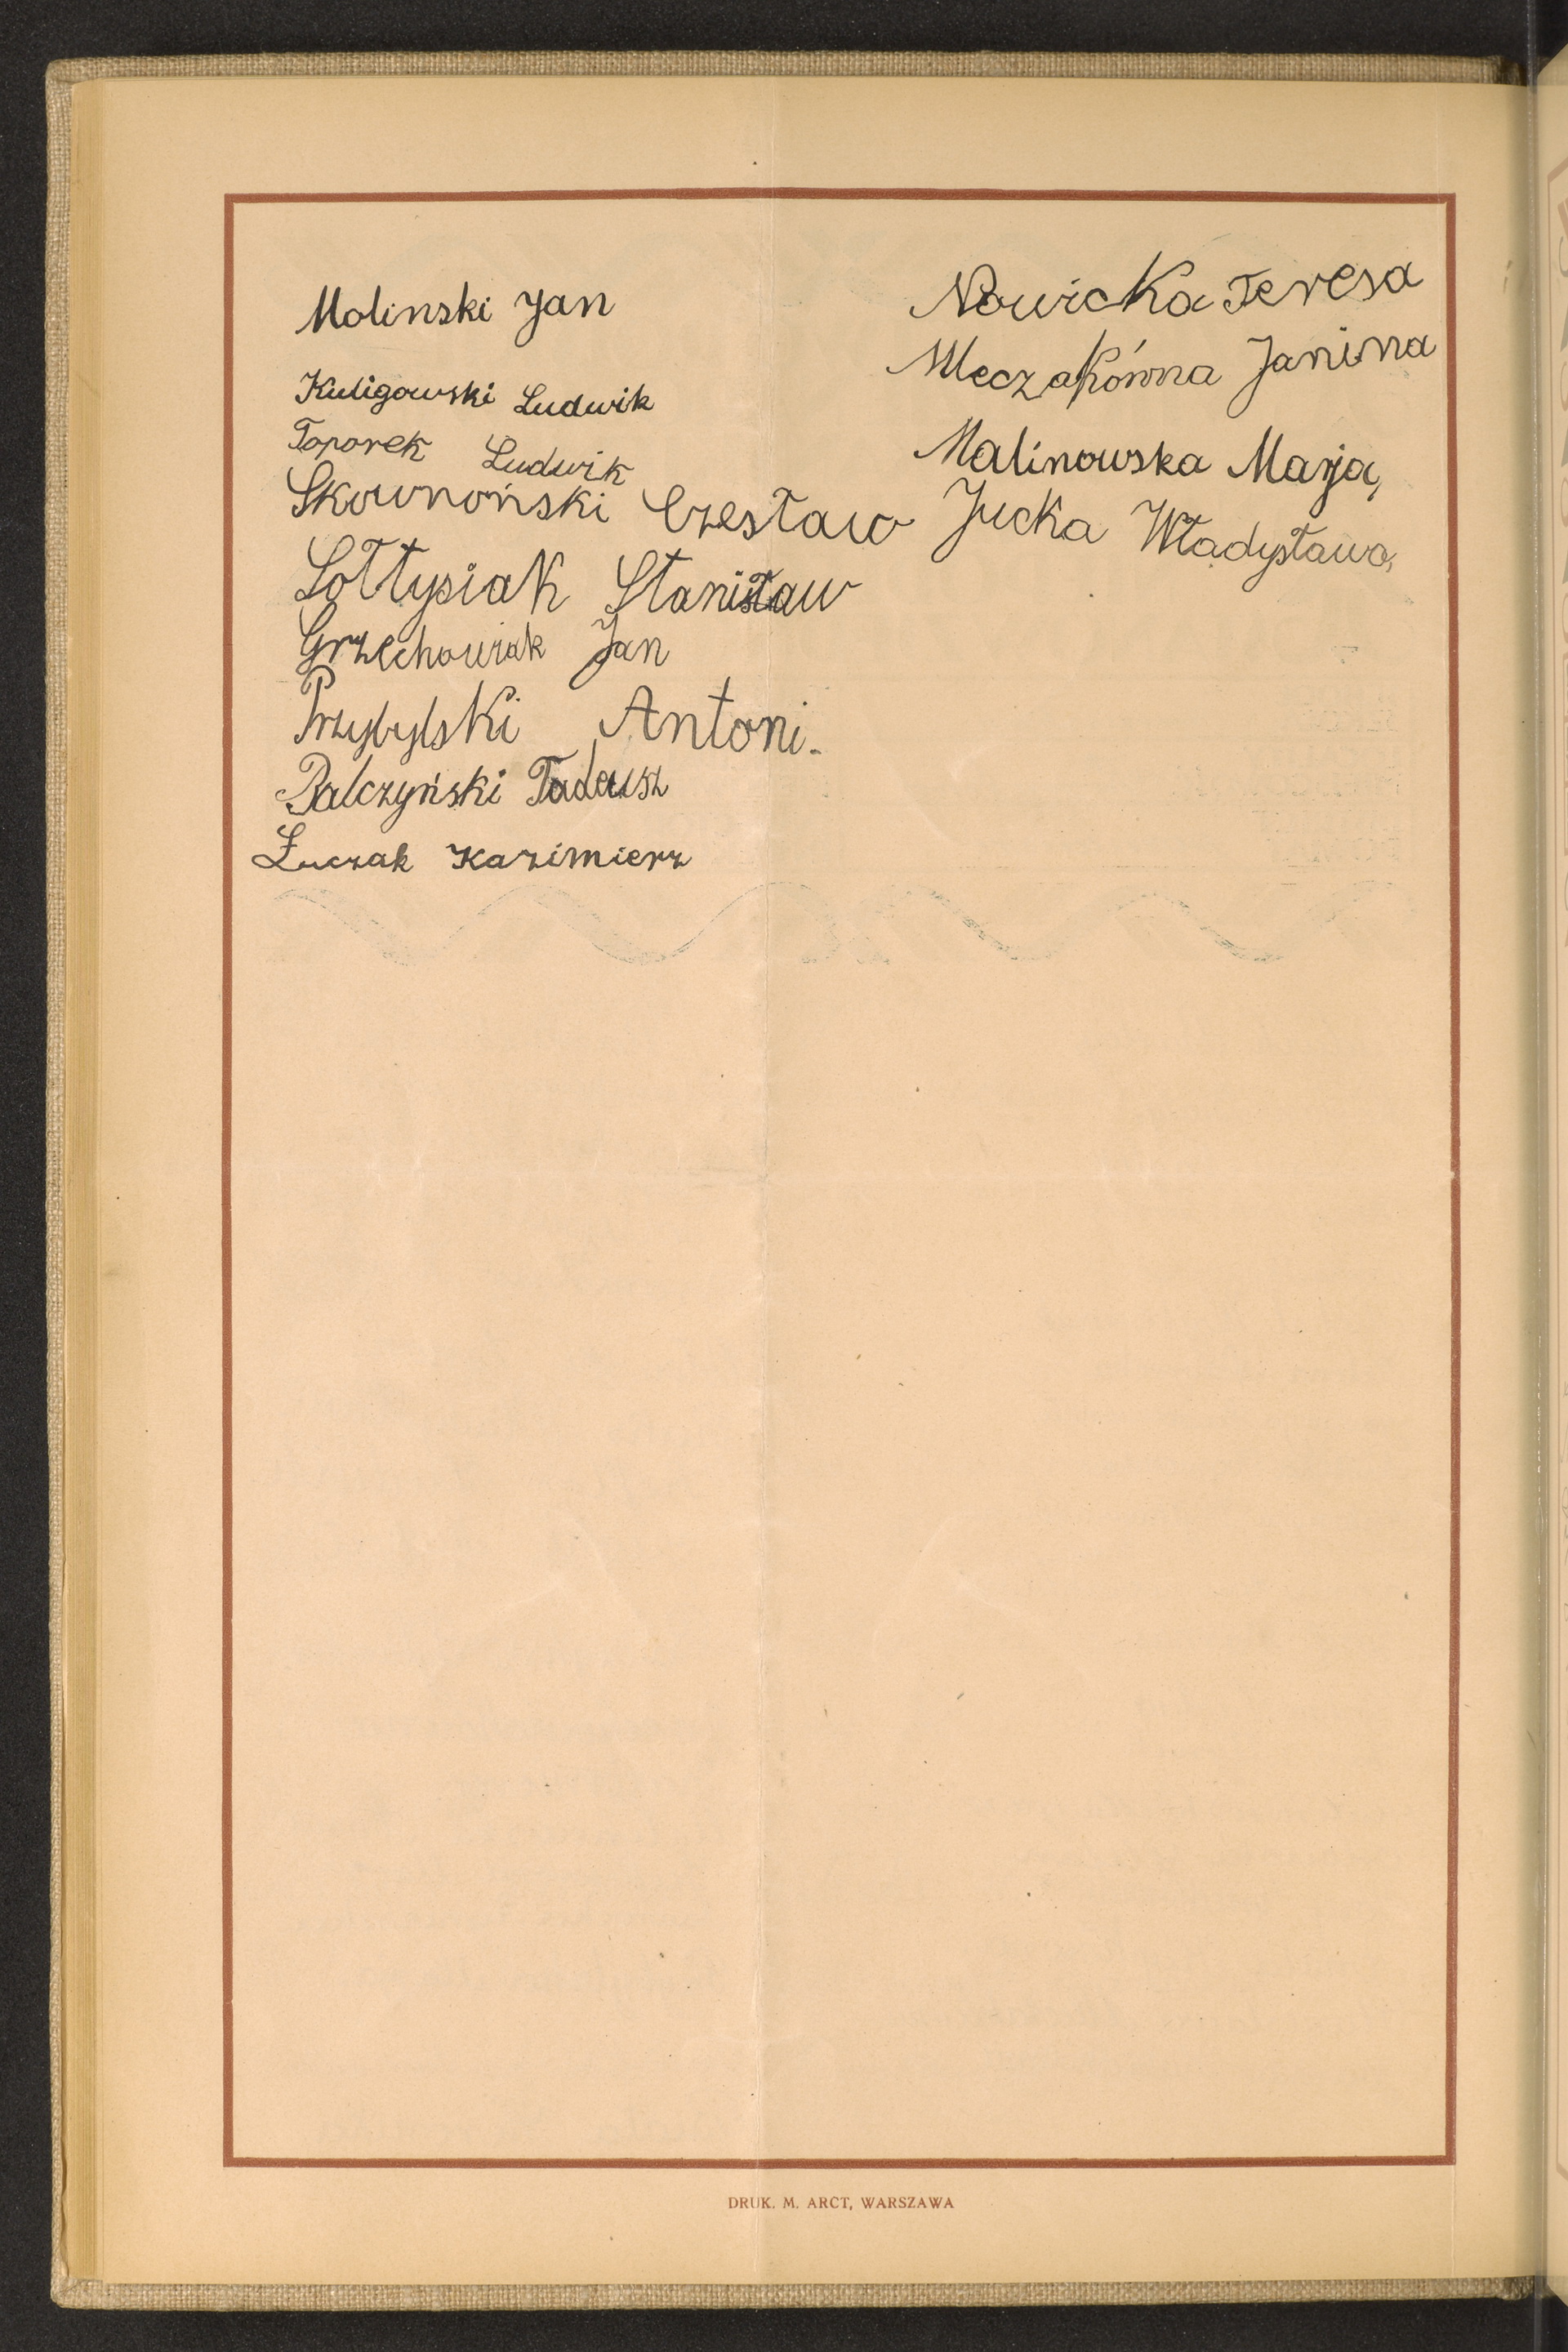 Molinski Jan
Kuligowski Ludwik
Toporek Ludwik
Skowroński Czesław
Sołtysiak Stanisław
Grzechowiak Jan
Przybylski Antoni.
Balczyński Tadeusz
Łuczak Kazimierz
Nowicka Teresa
Meczakówna Janina
Malinowska Marja,
Jucka Władysława,
DRUK. M. ARCT, WARSZAWA